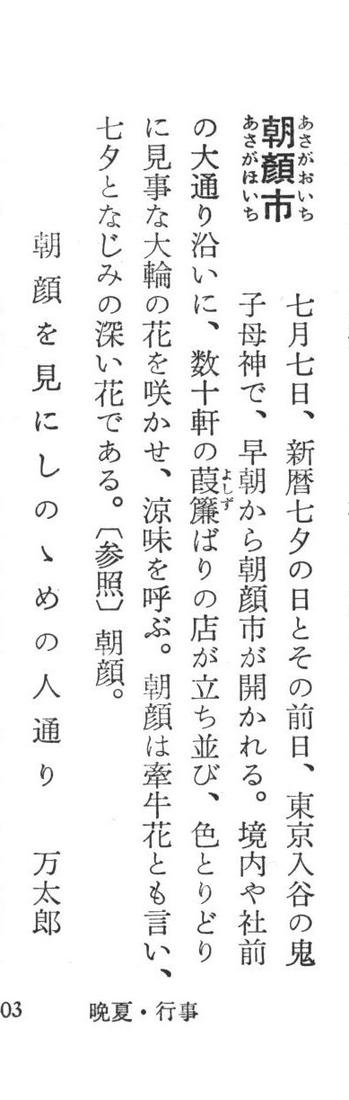 朝顔市
あさがおいち
あさがほいち
七月七日、新暦七夕の日とその前日、東京入谷の鬼
子母神で、早朝から朝顔市が開かれる。境内や社前
の大通り沿いに、数十軒の葭簾ばりの店が立ち並び、色とりどり
よしず
に見事な大輪の花を咲かせ、涼味を呼ぶ。朝顔は牽牛花とも言い、
七夕となじみの深い花である。〔参照〕朝顔。
朝顔を見にしのゝめの人通り 万太郎
03 晩夏・行事